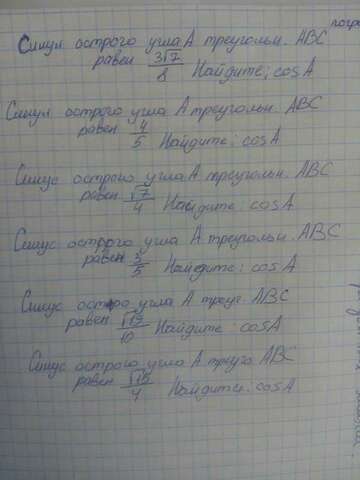 Синус острого угла А треугольн. АВС
равен 3√7/8 Найдите; cosA
Синус острого угла А треугольн. АВС
равен 4/5 Найдите; cosA
Синус острого угла А треугольн. АВС
равен √7/4 Найдите: cosA
Синус острого угла А треугольн. АВС
равен 3/5 Найдите: cosA
Синус острого угла А треуг. АВС
равен √19/10 Найдите: cosA
Синус острого угла А треуго. АВС
равен √15/4 Найдите: cosA